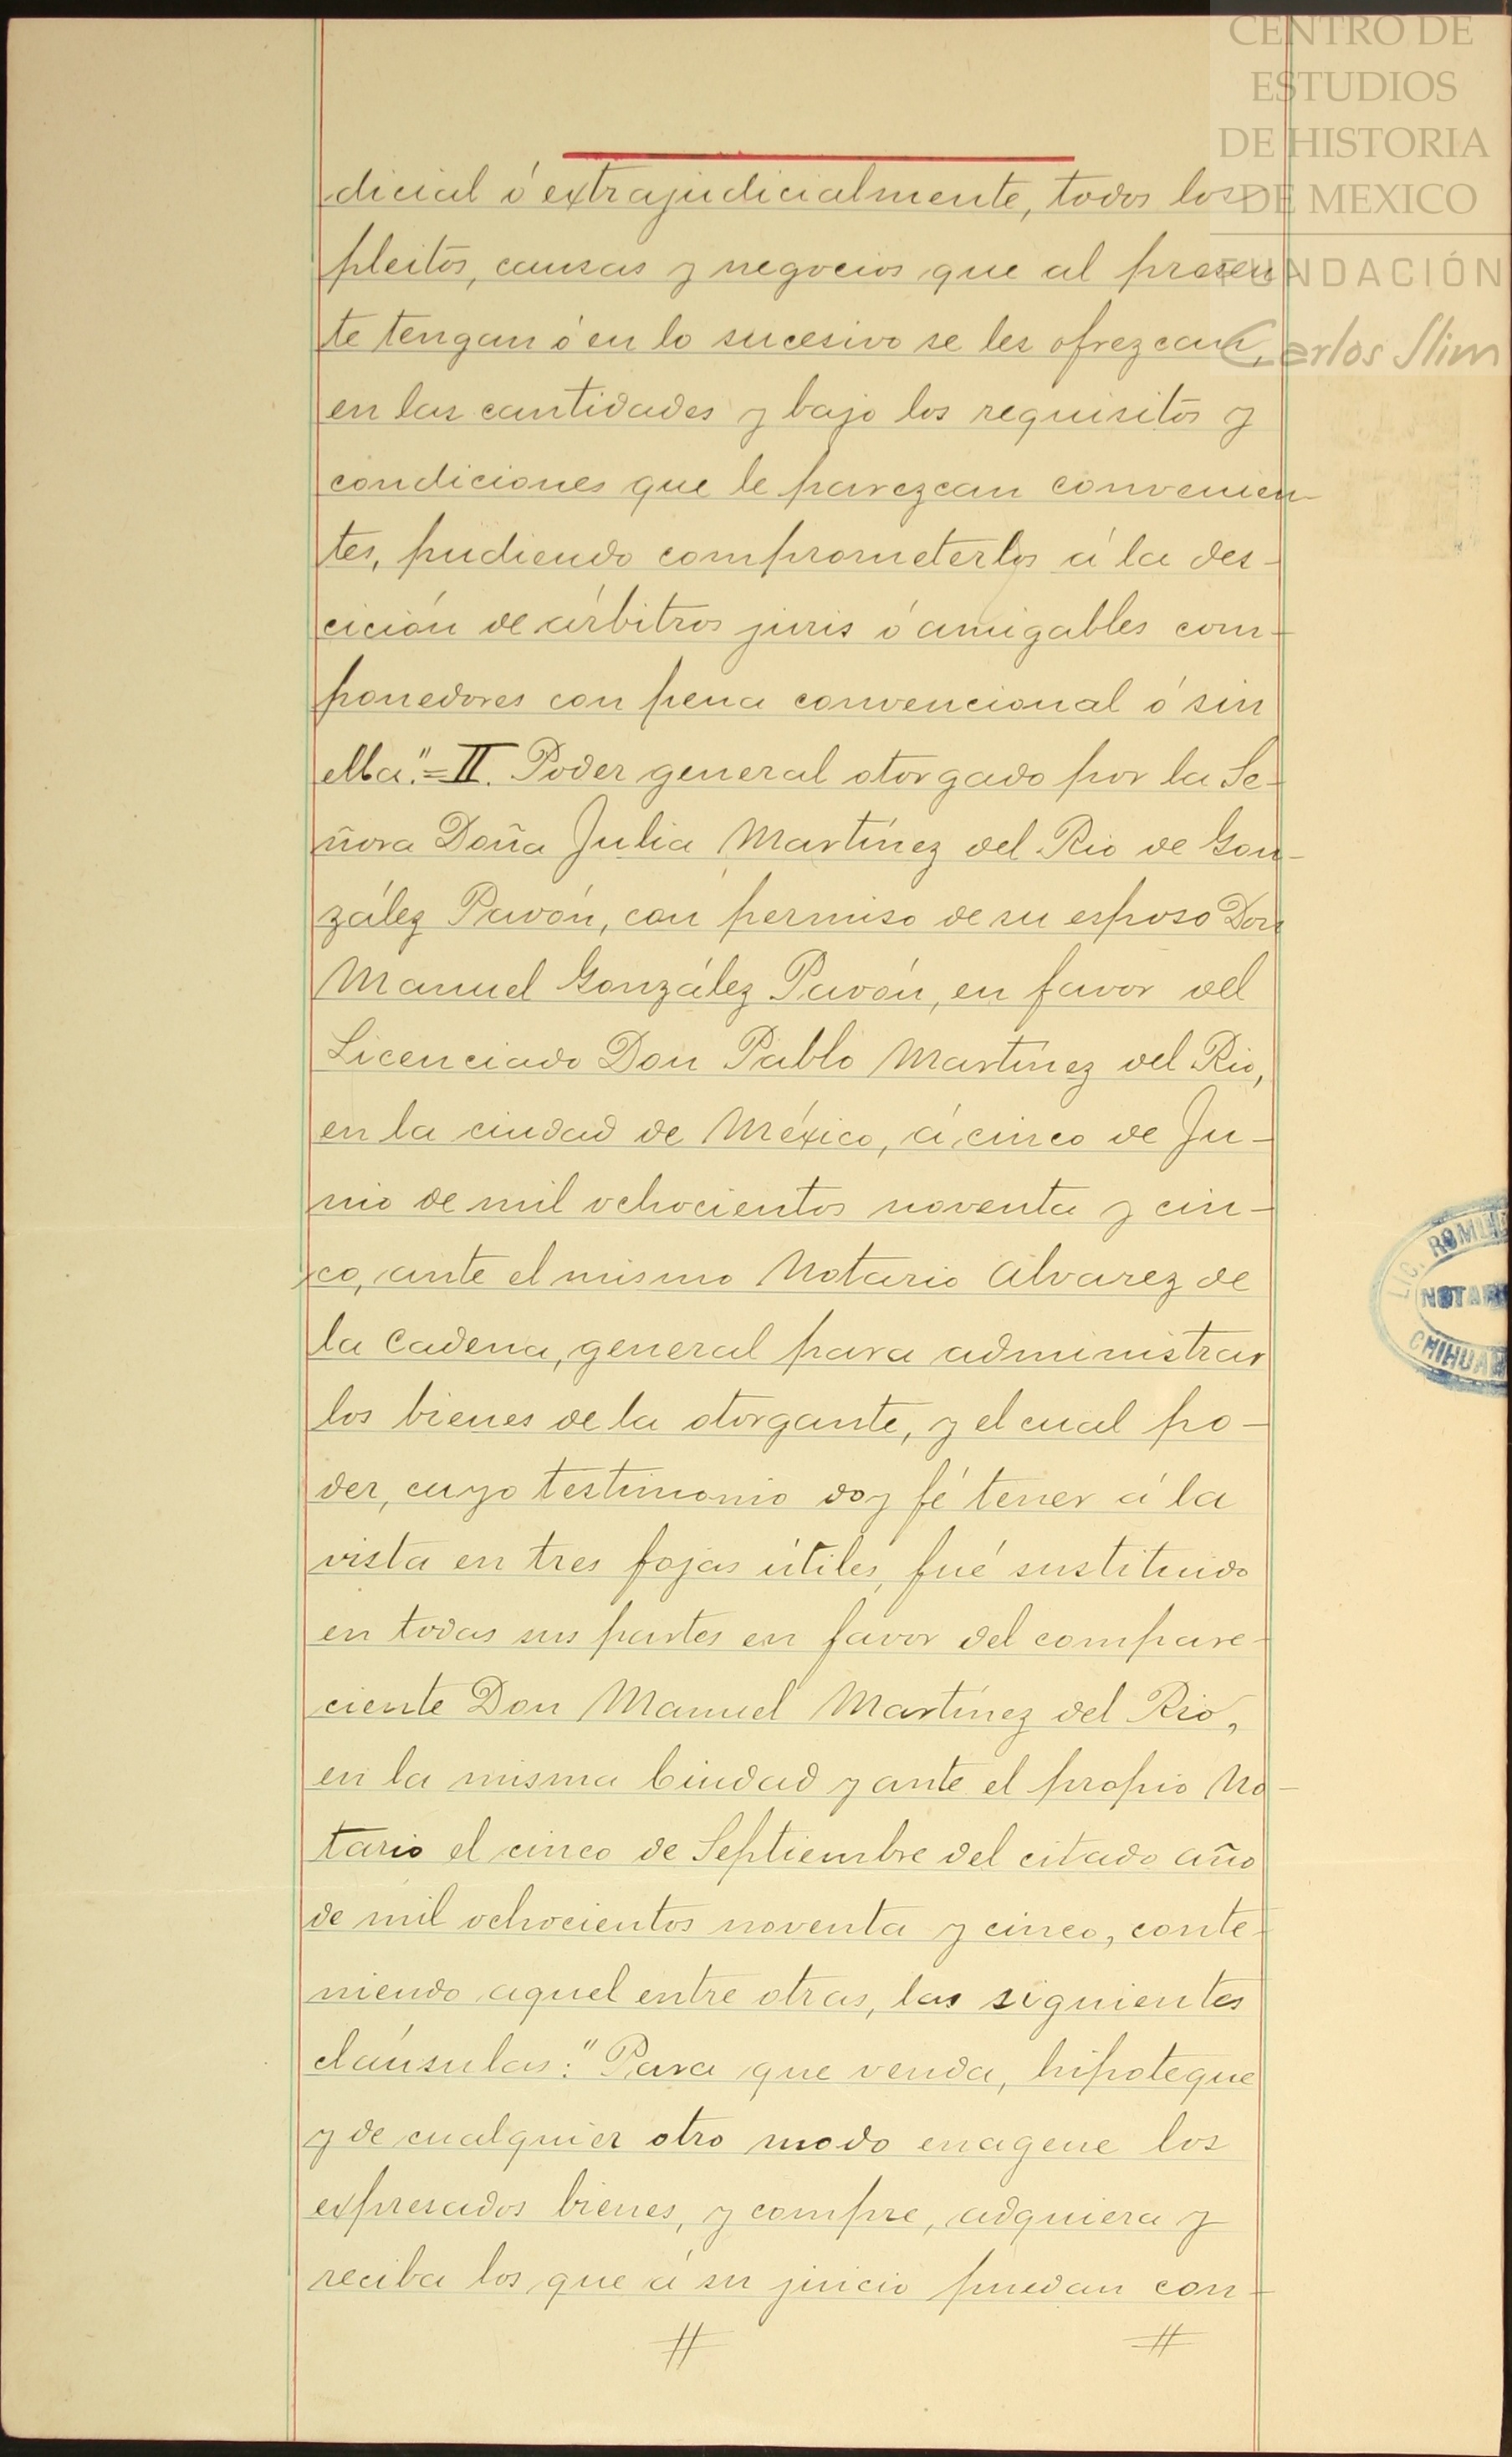 CENTRO DE
ESTUDIOS
DE HISTORIA
DE MEXICO
FUNDACIÓN
Carlos Slim
dicial ó extrajudicialmente, todos los
pleitos, causas y negocios que al presen
te tengan ó en lo sucesivo se les ofrezcan,
en las cantidades y bajo los requisitos y
condiciones que le parezcan convenien-
tes, pudiendo comprometerlos á la des-
cición de árbitros juris ó amigables com-
ponedores con pena convencional ó sin
ella."=II. Poder general otorgado por la Se-
ñora Doña Julia Martínez del Rio de Gon-
zález Pavón, con permiso de su esposo Don
Manuel González Pavón, en favor del
Licenciado Don Pablo Martínez del Rio,
en la ciudad de México, á cinco de Ju-
nio de mil ochocientos noventa y cin-
co, ante el mismo Notario Alvarez de
la Cadena, general para administrar
los bienes de la otorgante, y el cual po-
der, cuyo testimonio doy fé tener á la
vista en tres fojas útiles, fué sustituido
en todas sus partes en favor del compare-
ciente Don Manuel Martínez del Rio,
en la misma Ciudad y ante el propio No-
tario el cinco de Septiembre del citado año
de mil ochocientos noventa y cinco, conte-
niendo aquel entre otras, las siguientes
cláusulas: "Para que venda, hipoteque
y de cualquier otro modo enagene los
expresados bienes, y compre, adquiera y
reciba los que á su juicio puedan con-
LIC. ROMU
NOTAR
CHIHUAH